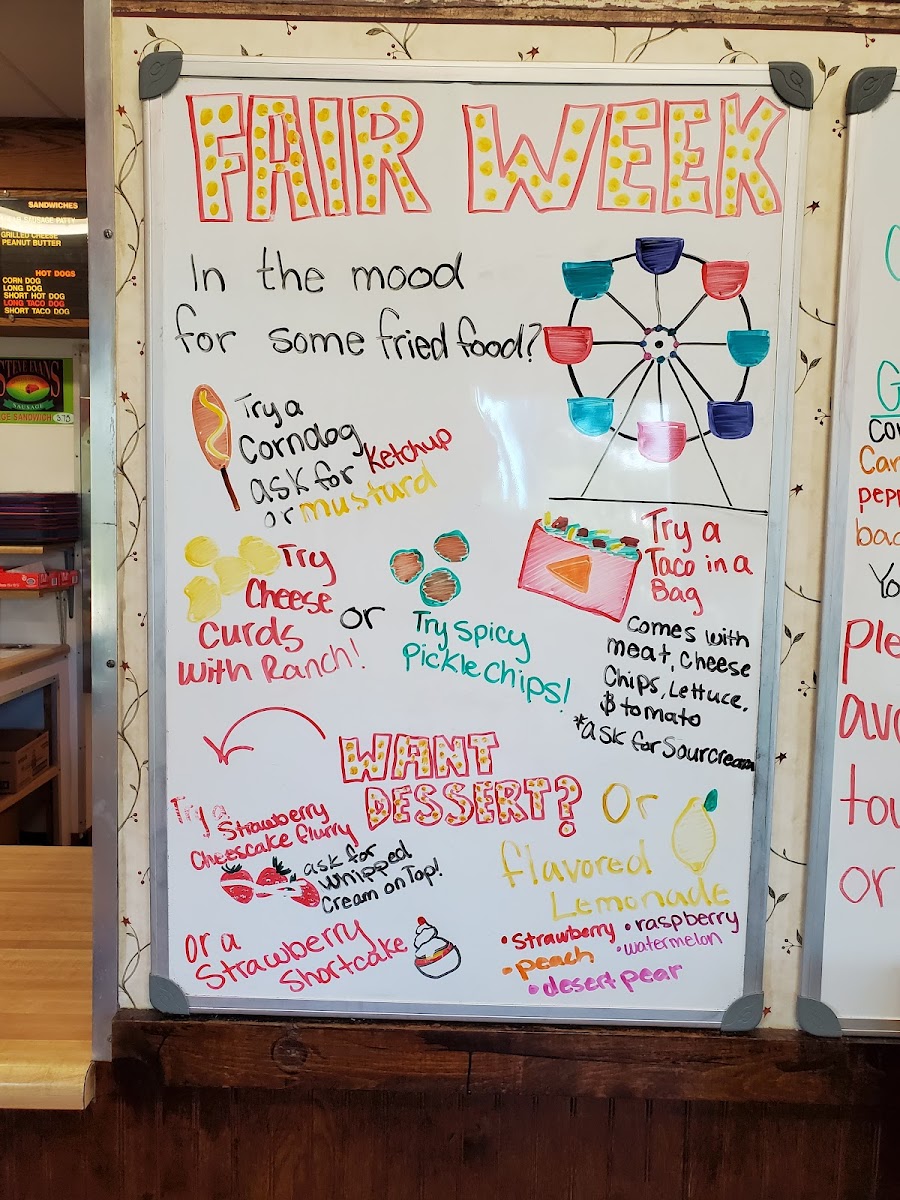 FAIR WEEK
In the mood
for some fried food?
Try a
Corndog
ask for Ketchup
or mustard
Try
Cheese
Curds
with Ranch!
or
Try spicy
Pickle chips!
Try a
Taco in a
Bag
comes with
meat, cheese
Chips, Lettuce,
& tomato
*ask for sour cream
WANT
DESSERT?
Try a Strawberry
Cheescake flurry
ask for
whipped
Cream on Top!
or a
Strawberry
Shortcake
Or
flavored
Lemonade
• Strawberry • raspberry
• peach • watermelon
• desert pear
SANDWICHES
SAUSAGE PATTY
GRILLED CHEESE
PEANUT BUTTER
HOT DOGS
CORN DOG
LONG DOG
SHORT HOT DOG
LONG TACO DOG
SHORT TACO DOG
STEVE EVANS
SAUSAGE
SANDWICH